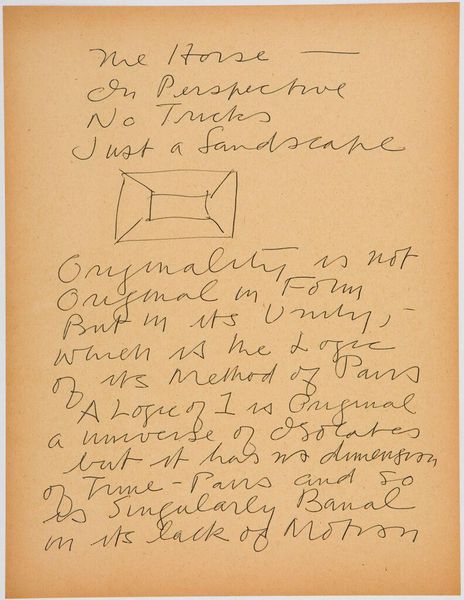 The Horse —
In Perspective
No Tricks
Just a Landscape
Originality is not
Original in Form
But in its Unity, -
which is the Logic
of its Method of Pairs
A Logic of 1 is Original
a universe of Isolates
but it has no dimension
of Time-Pairs and so
is Singularly Banal
in its lack of Motion